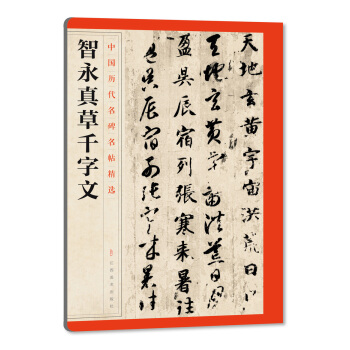 天地玄黄宇宙洪荒日月
天地玄黄宇宙洪荒日月
盈昃辰宿列張寒来暑往
盈昃辰宿列張寒来暑往
中国历代名碑名帖精选
智永真草千字文
江西美术出版社